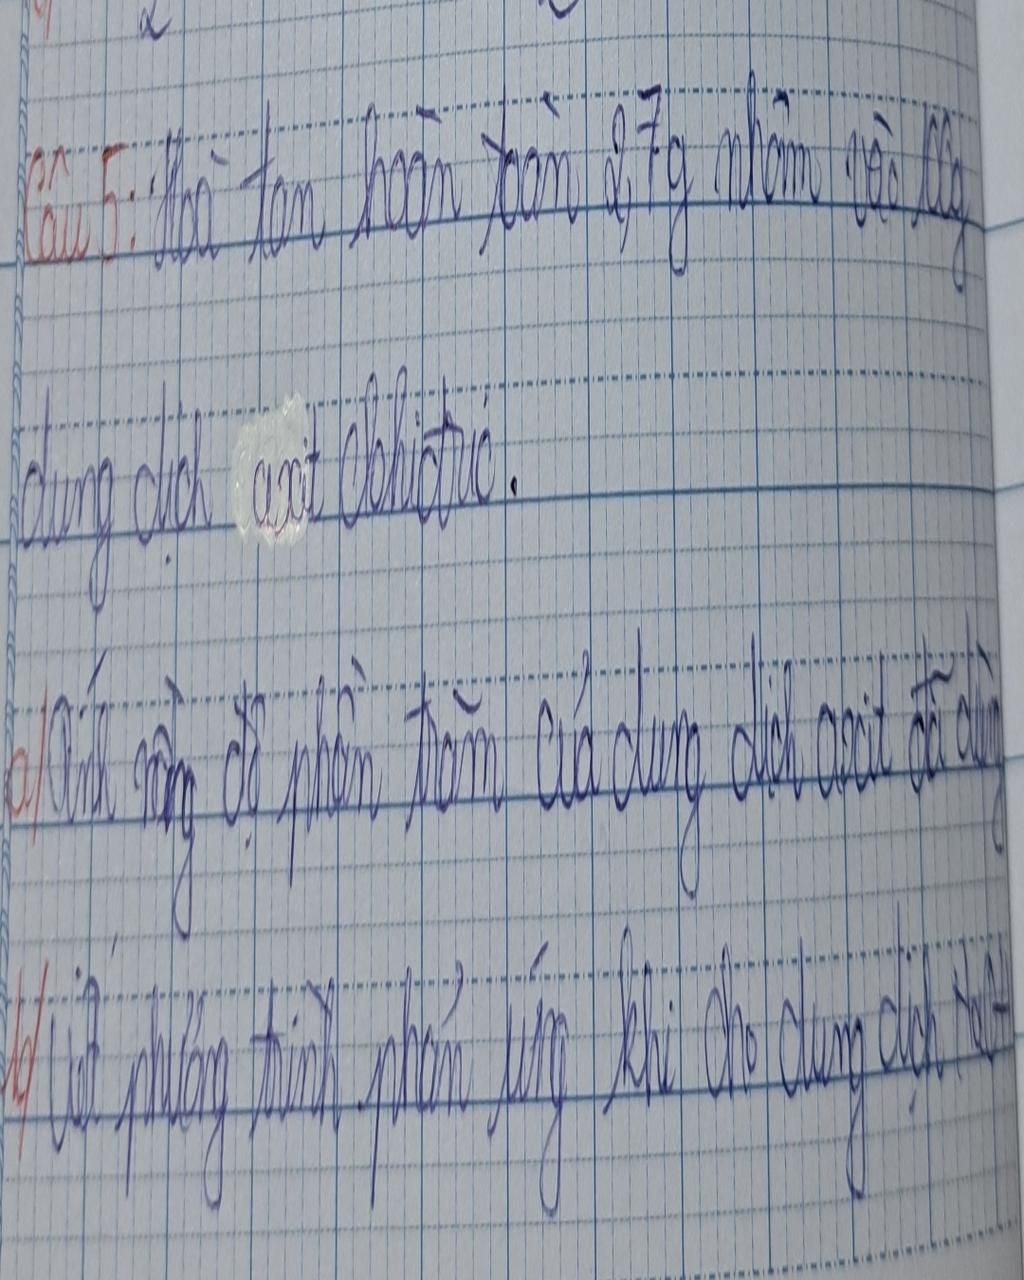 Câu 5: Hoà tan hoàn toàn 2,7g nhôm vào 100g
dung dịch axit clohiđric.
a/ Tính nồng độ phần trăm của dung dịch axit đã dùng
b/ Viết phương trình phản ứng khi cho dung dịch